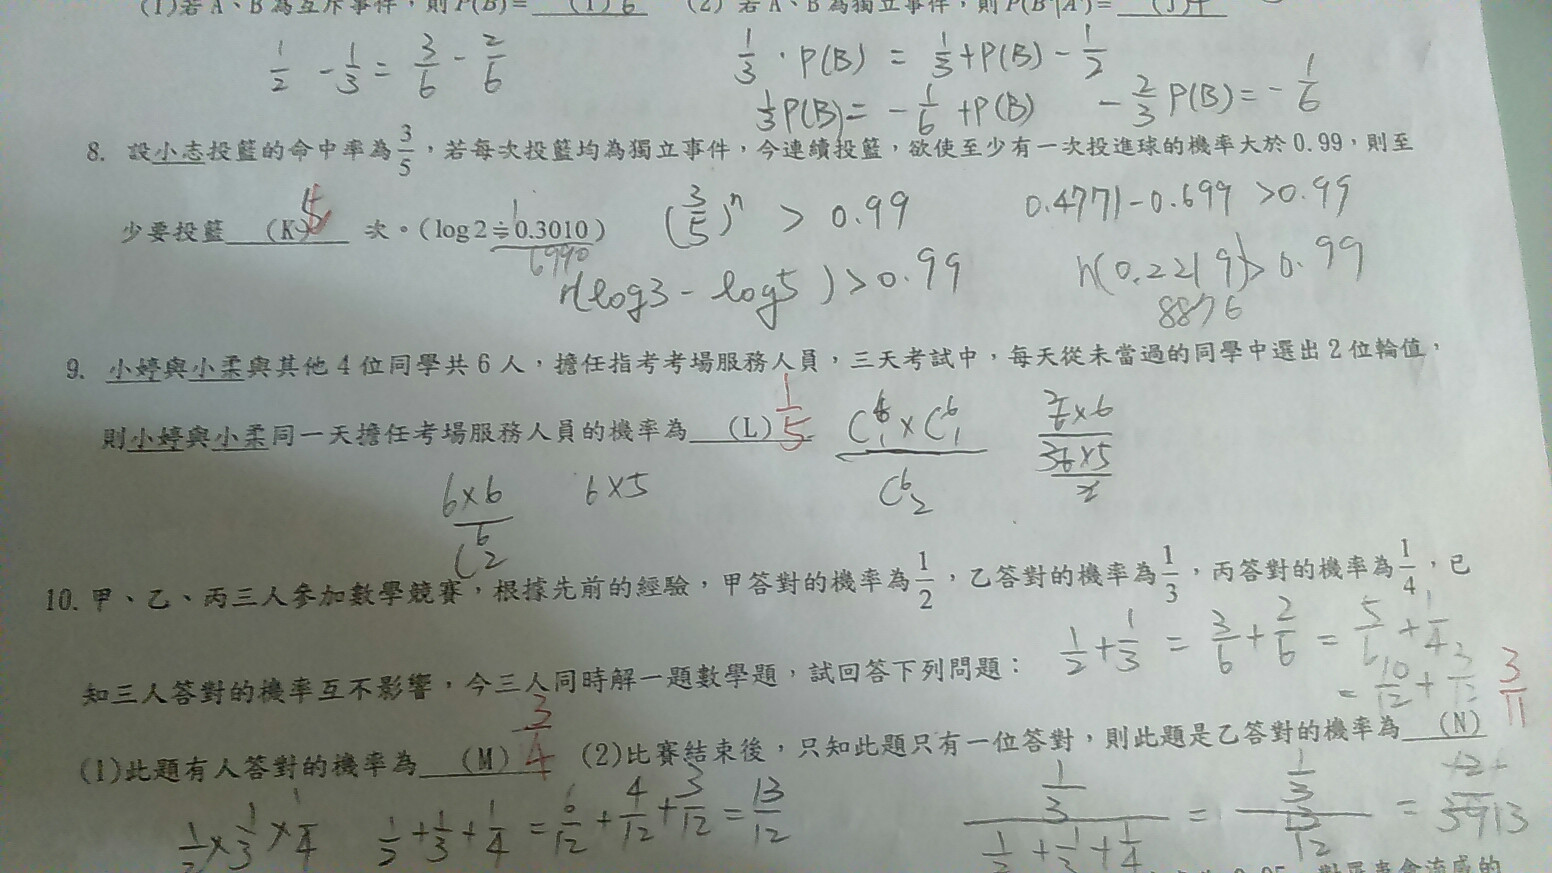 (1)若A、B為互斥事件，則P(B)= (I) 6 (2) 若A、B為獨立事件，則P(B|A')= (J) 4
1/2 - 1/3 = 3/6 - 2/6
1/3 · P(B) = 1/3 + P(B) - 1/2
1/3 P(B) = - 1/6 + P(B) - 2/3 P(B) = - 1/6
8. 設小志投籃的命中率為 3/5，若每次投籃均為獨立事件，今連續投籃，欲使至少有一次投進球的機率大於0.99，則至
少要投籃 (K) 次。(log2≒0.3010)
6990
(3/5)^n > 0.99
0.4771-0.699 >0.99
n(log3 - log5) > 0.99
n(0.2219) > 0.99
8876
9. 小婷與小柔與其他4位同學共6人，擔任指考考場服務人員，三天考試中，每天從未當過的同學中選出2位輪值，
則小婷與小柔同一天擔任考場服務人員的機率為 (L) 1/5
6×6
C 6 2
6×5
C 6 1 × C 6 1
C 6 2
10. 甲、乙、丙三人參加數學競賽，根據先前的經驗，甲答對的機率為 1/2，乙答對的機率為 1/3，丙答對的機率為 1/4，已
1/2 + 1/3 = 3/6 + 2/6 = 5/6 + 1/4
知三人答對的機率互不影響，今三人同時解一題數學題，試回答下列問題：
= 10/12 + 3/12
(1)此題有人答對的機率為 (M) 3/4 (2)比賽結束後，只知此題只有一位答對，則此題是乙答對的機率為 (N) 3/11
1/2 × 1/3 × 1/4
1/2 + 1/3 + 1/4 = 6/12 + 4/12 + 3/12 = 13/12
1/3
1/2 + 1/3 + 1/4
= 1/3
13/12
=